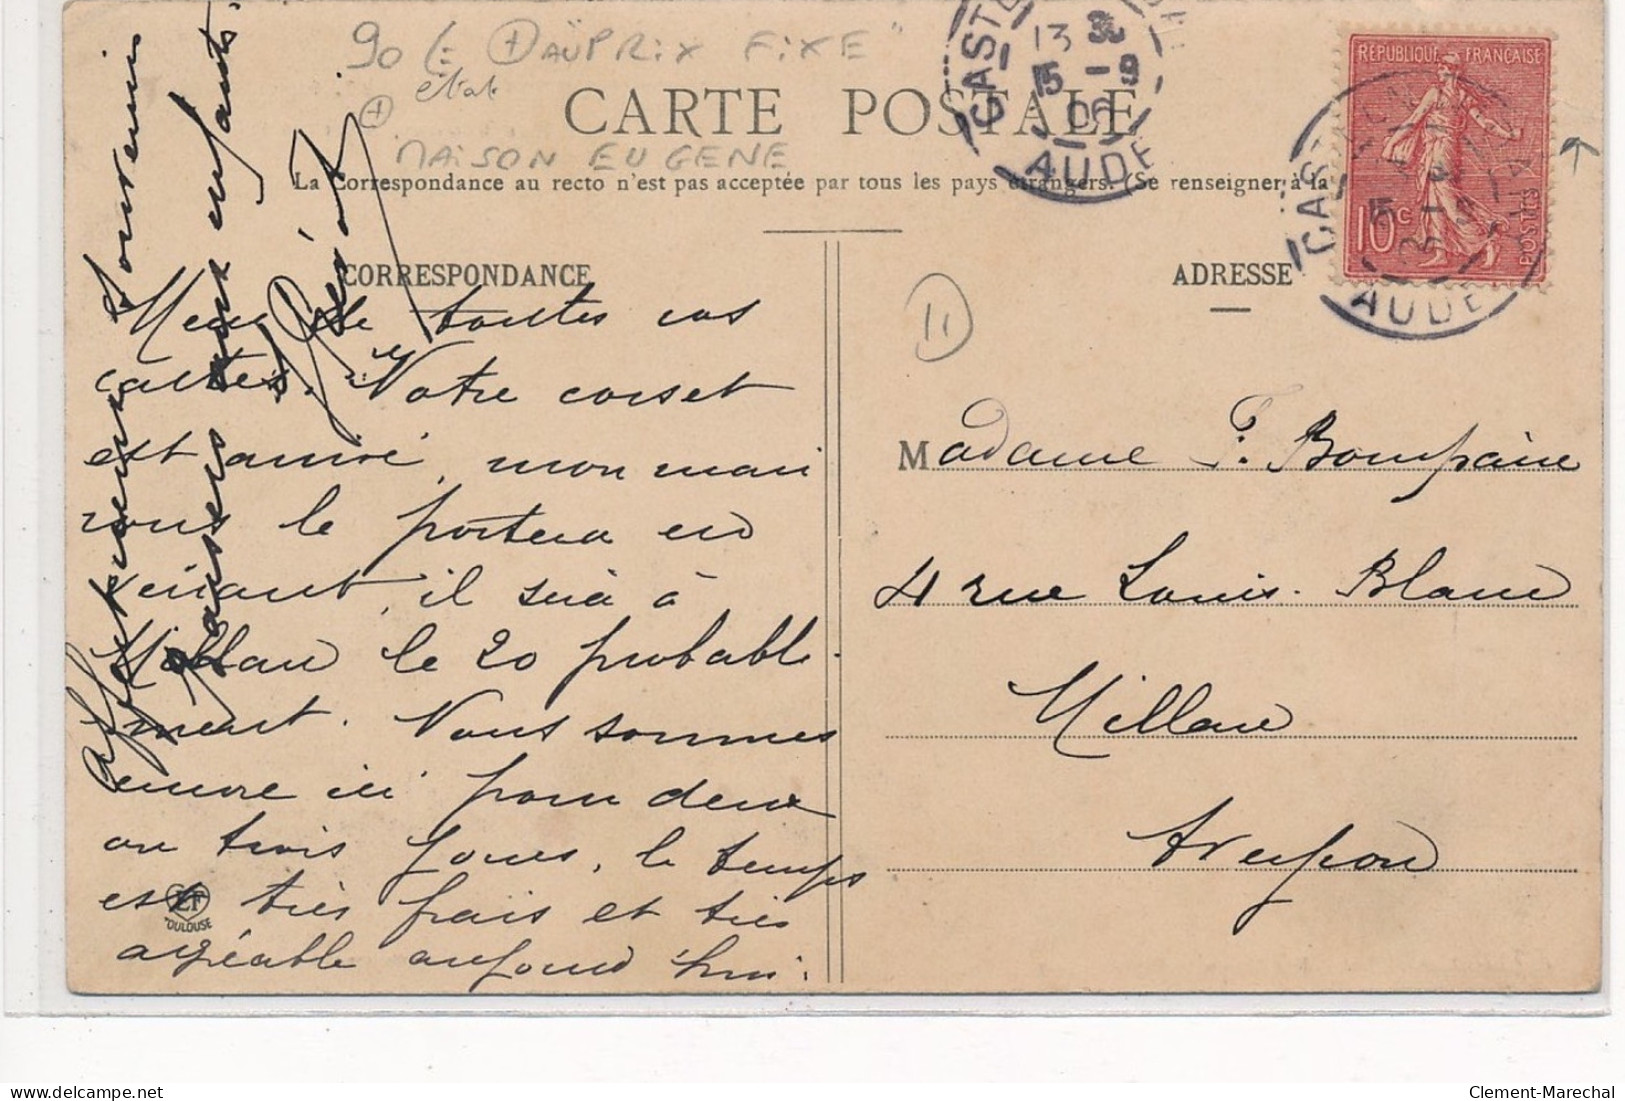 90 € + "AÜPRIX FIXE"
état
+
MAISON EUGENE
CARTE POSTALE
La Correspondance au recto n'est pas acceptée par tous les pays étrangers. (Se renseigner à la
CORRESPONDANCE
Merci de toutes vos
cartes. Votre corset
est arrivé, mon mari
vous le portera en
venant, il sera à
Millau le 20 probable-
ment. Nous sommes
encore ici pour deux
ou trois jours, le temps
est très frais et très
agréable aujourd'hui.
Affectueux souvenir
baisers aux enfants.
LF
TOULOUSE
13 30
15 - 9
06
AUDE
RÉPUBLIQUE FRANÇAISE
10 c
POSTES
AUDE
ADRESSE
11
Madame F. Bompaire
4 rue Louis-Blanc
Millau
Aveyron
delcampe.net
Clement-Marechal